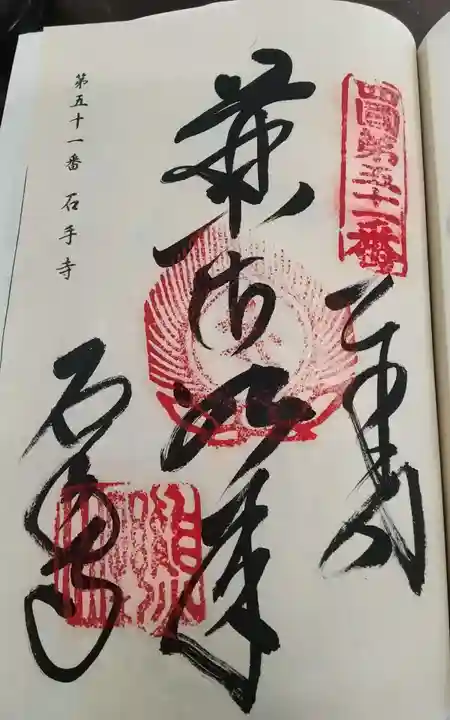 四國第五十一番
奉拝
薬師如来
石手寺
第五十一番 石手寺